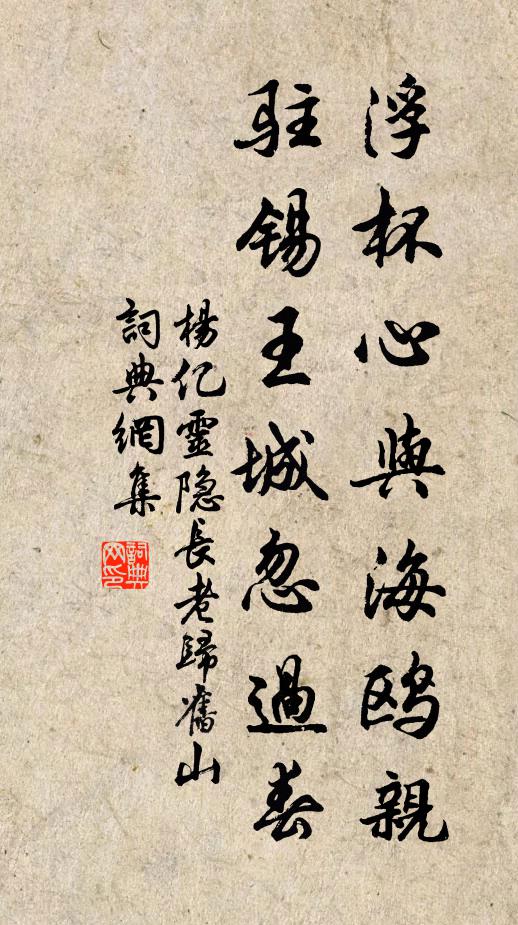 浮杯心與海鸥親
駐錫王城忽過春
楊亿靈隐長老歸舊山
詞典網集
詞典網印